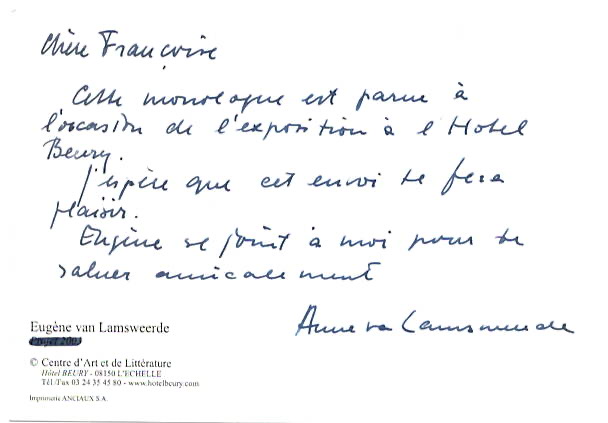 Chère Françoise
Cette monologue est parue à
l'occasion de l'exposition à l'Hotel
Beury.
J'espère que cet envoi te fera
plaisir.
Eugène se joint à moi pour te
saluer amicalement
Anne van Lamsweerde
Eugène van Lamsweerde
Projet 2003
© Centre d'Art et de Littérature
Hôtel BEURY - 08150 L'ECHELLE
Tél/Fax 03 24 35 45 80 - www.hotelbeury.com
Imprimerie ANCIAUX S.A.